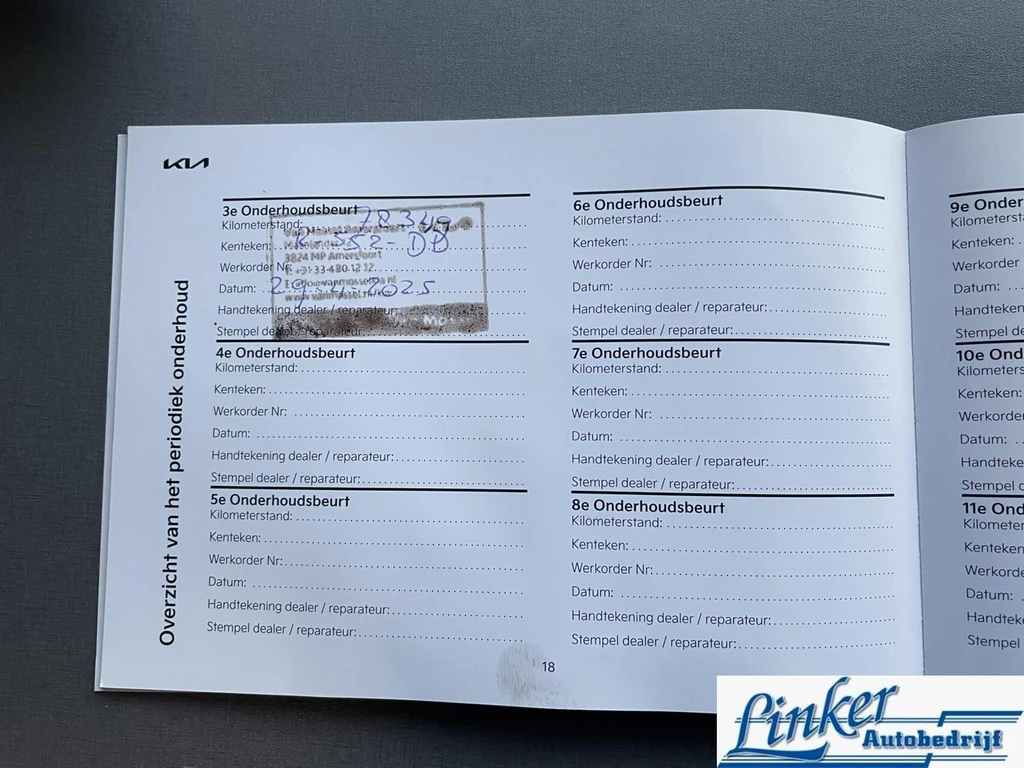 KIA
Overzicht van het periodiek onderhoud
3e Onderhoudsbeurt
Kilometerstand: 78349
Kenteken: R-552-DD
3824 MP Amersfoort
Werkorder Nr:
T: +31 33 480 12 12
Datum: 2025
Handtekening dealer / reparateur:
Stempel dealer / reparateur:
4e Onderhoudsbeurt
Kilometerstand:
Kenteken:
Werkorder Nr:
Datum:
Handtekening dealer / reparateur:
Stempel dealer / reparateur:
5e Onderhoudsbeurt
Kilometerstand:
Kenteken:
Werkorder Nr:
Datum:
Handtekening dealer / reparateur:
Stempel dealer / reparateur:
6e Onderhoudsbeurt
Kilometerstand:
Kenteken:
Werkorder Nr:
Datum:
Handtekening dealer / reparateur:
Stempel dealer / reparateur:
7e Onderhoudsbeurt
Kilometerstand:
Kenteken:
Werkorder Nr:
Datum:
Handtekening dealer / reparateur:
Stempel dealer / reparateur:
8e Onderhoudsbeurt
Kilometerstand:
Kenteken:
Werkorder Nr:
Datum:
Handtekening dealer / reparateur:
Stempel dealer / reparateur:
18
9e Onder
Kilometersta
Kenteken:
Werkorder
Datum:
Handteken
Stempel de
10e Ond
Kilometers
Kenteken:
Werkorder
Datum:
Handteke
Stempel d
11e Ond
Kilometer
Kenteken
Werkorde
Datum:
Handteke
Stempel
Linker
Autobedrijf